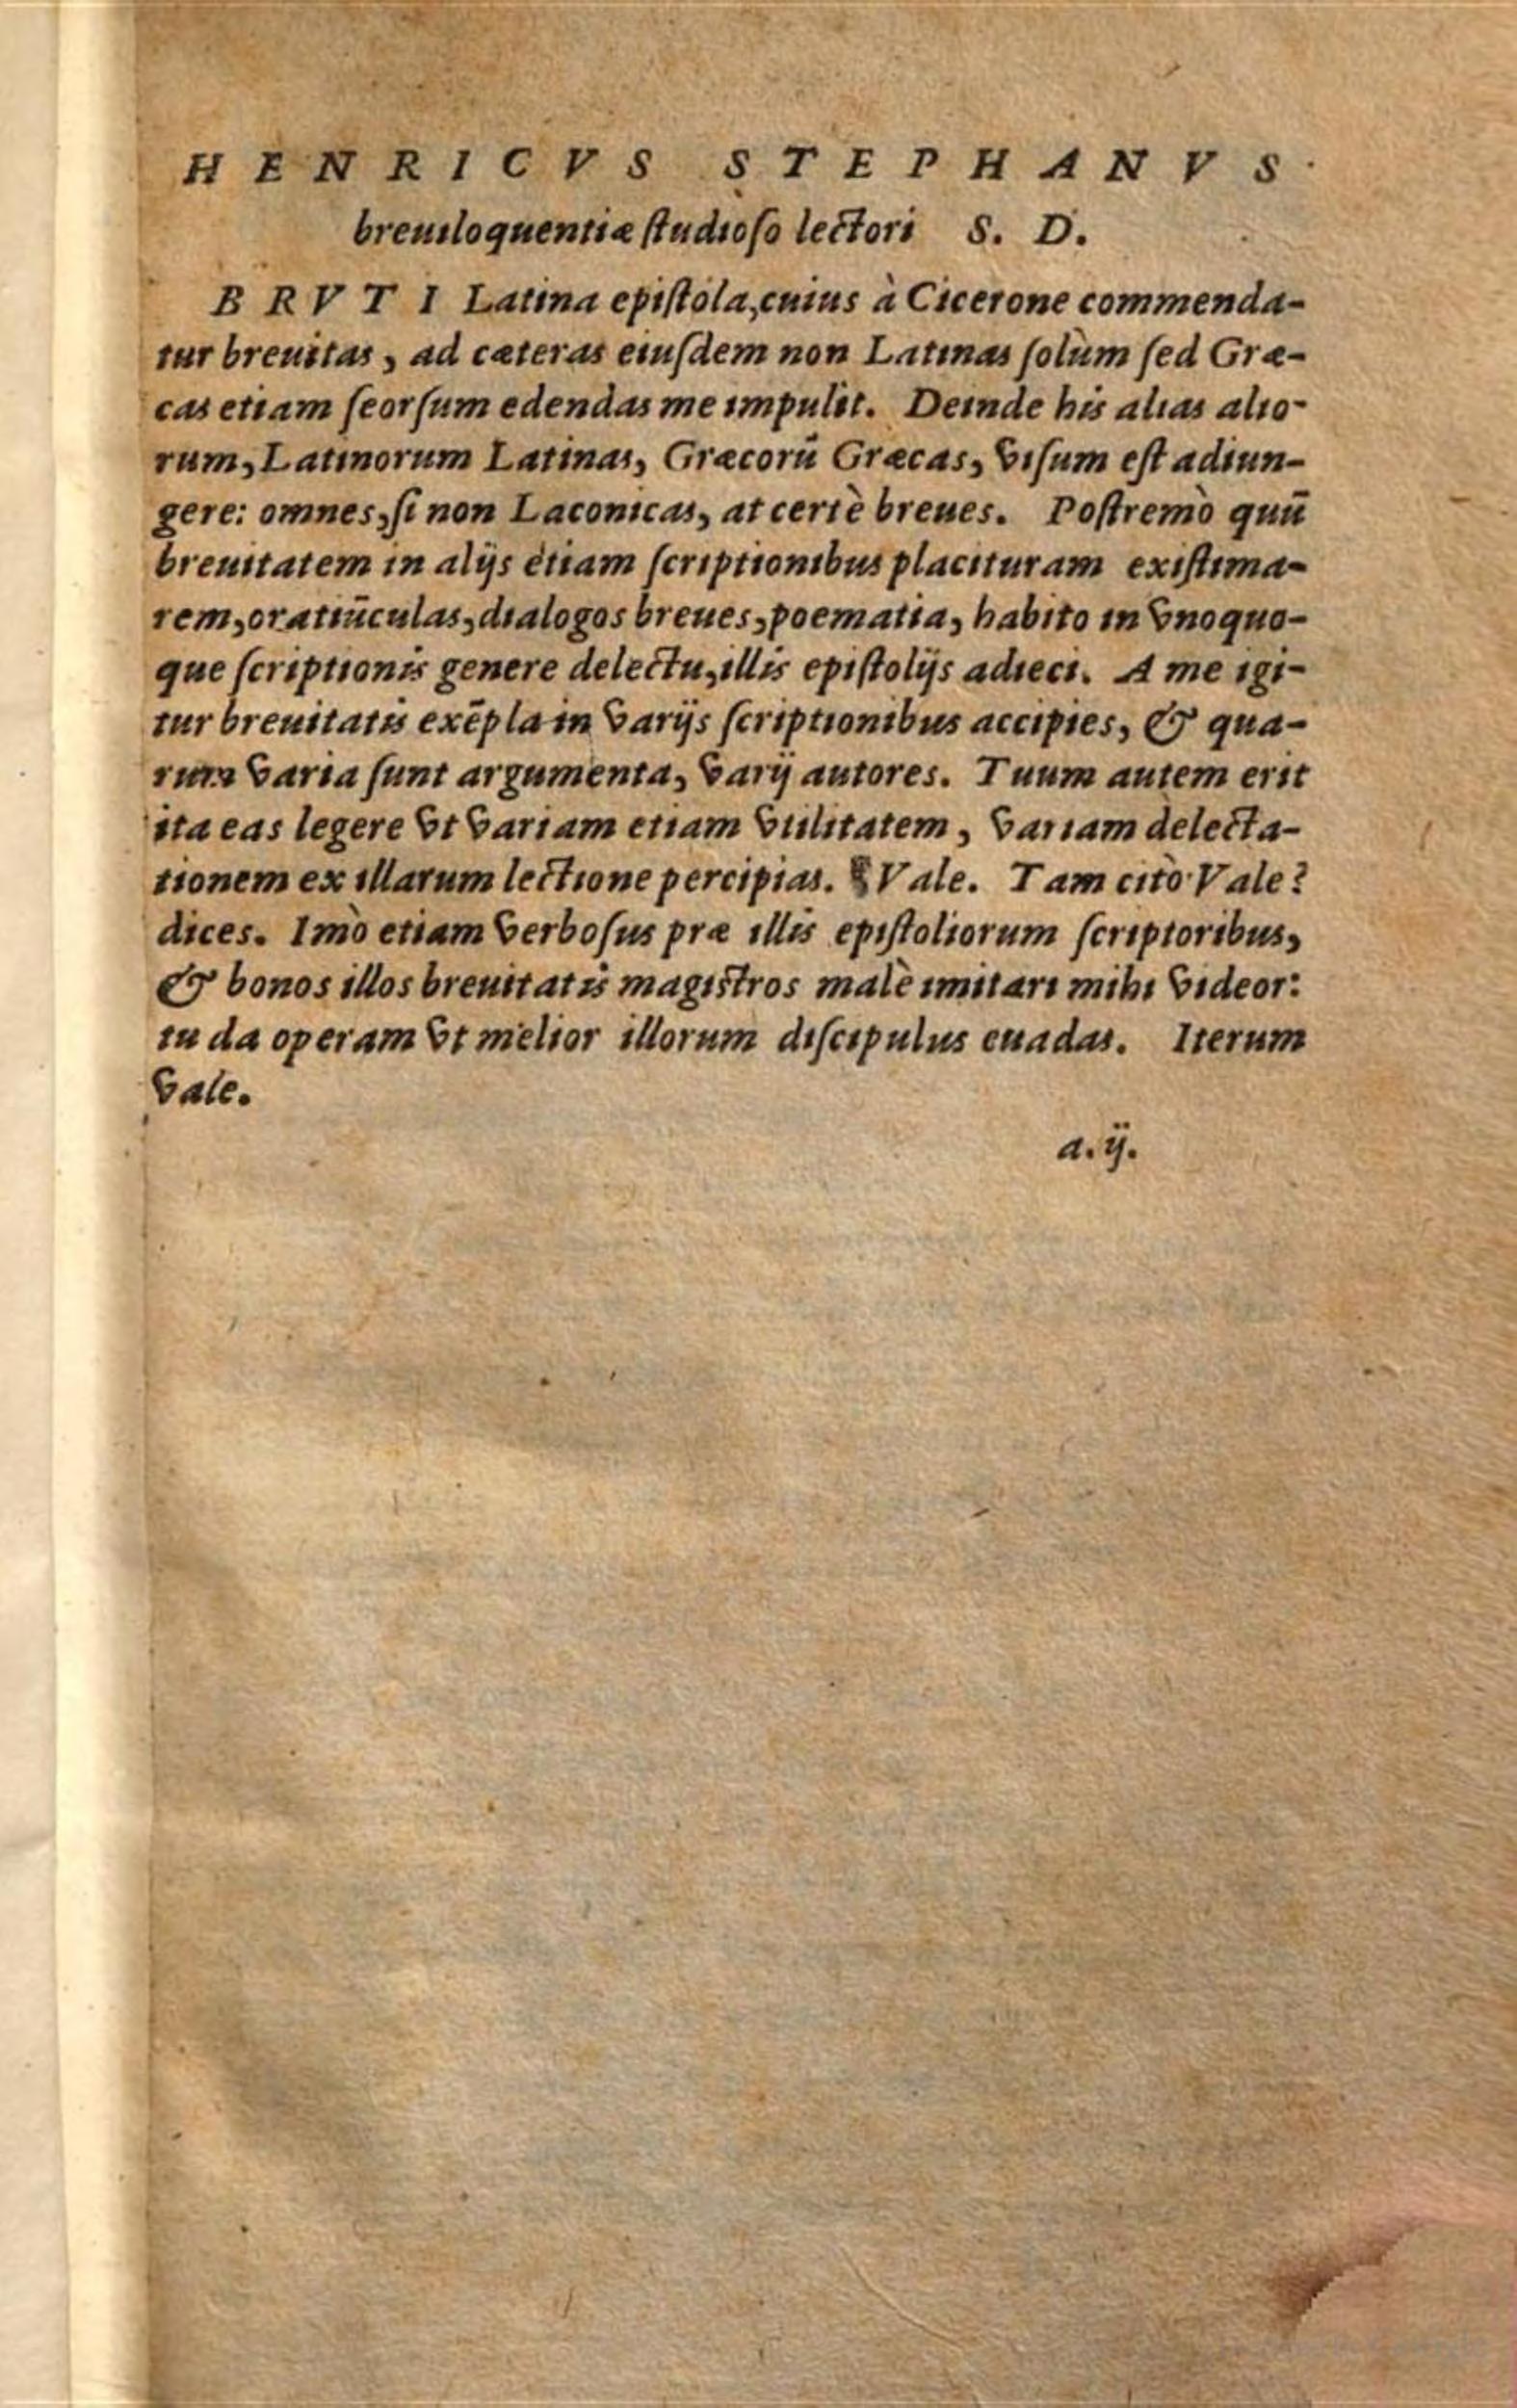 HENRICVS STEPHANVS
breuiloquentiæ studioso lectori S. D.
BRVTI Latina epistola, cuius à Cicerone commenda-
tur breuitas, ad cæteras eiusdem non Latinas solùm sed Græ-
cas etiam seorsum edendas me impulit. Deinde his alias alio-
rum, Latinorum Latinas, Græcorū Græcas, visum est adiun-
gere: omnes, si non Laconicas, at certè breues. Postremò quū
breuitatem in alijs etiam scriptionibus placituram existima-
rem, oratiūculas, dialogos breues, poematia, habito in vnoquo-
que scriptionis genere delectu, illis epistolijs adieci. A me igi-
tur breuitatis exēpla in varijs scriptionibus accipies, & qua-
rum varia sunt argumenta, varij autores. Tuum autem erit
ita eas legere vt variam etiam vtilitatem, variam delecta-
tionem ex illarum lectione percipias. Vale. Tam citò Vale?
dices. Imò etiam verbosus præ illis epistoliorum scriptoribus,
& bonos illos breuitatis magistros malè imitari mihi videor:
tu da operam vt melior illorum discipulus euadas. Iterum
vale.
a.ij.